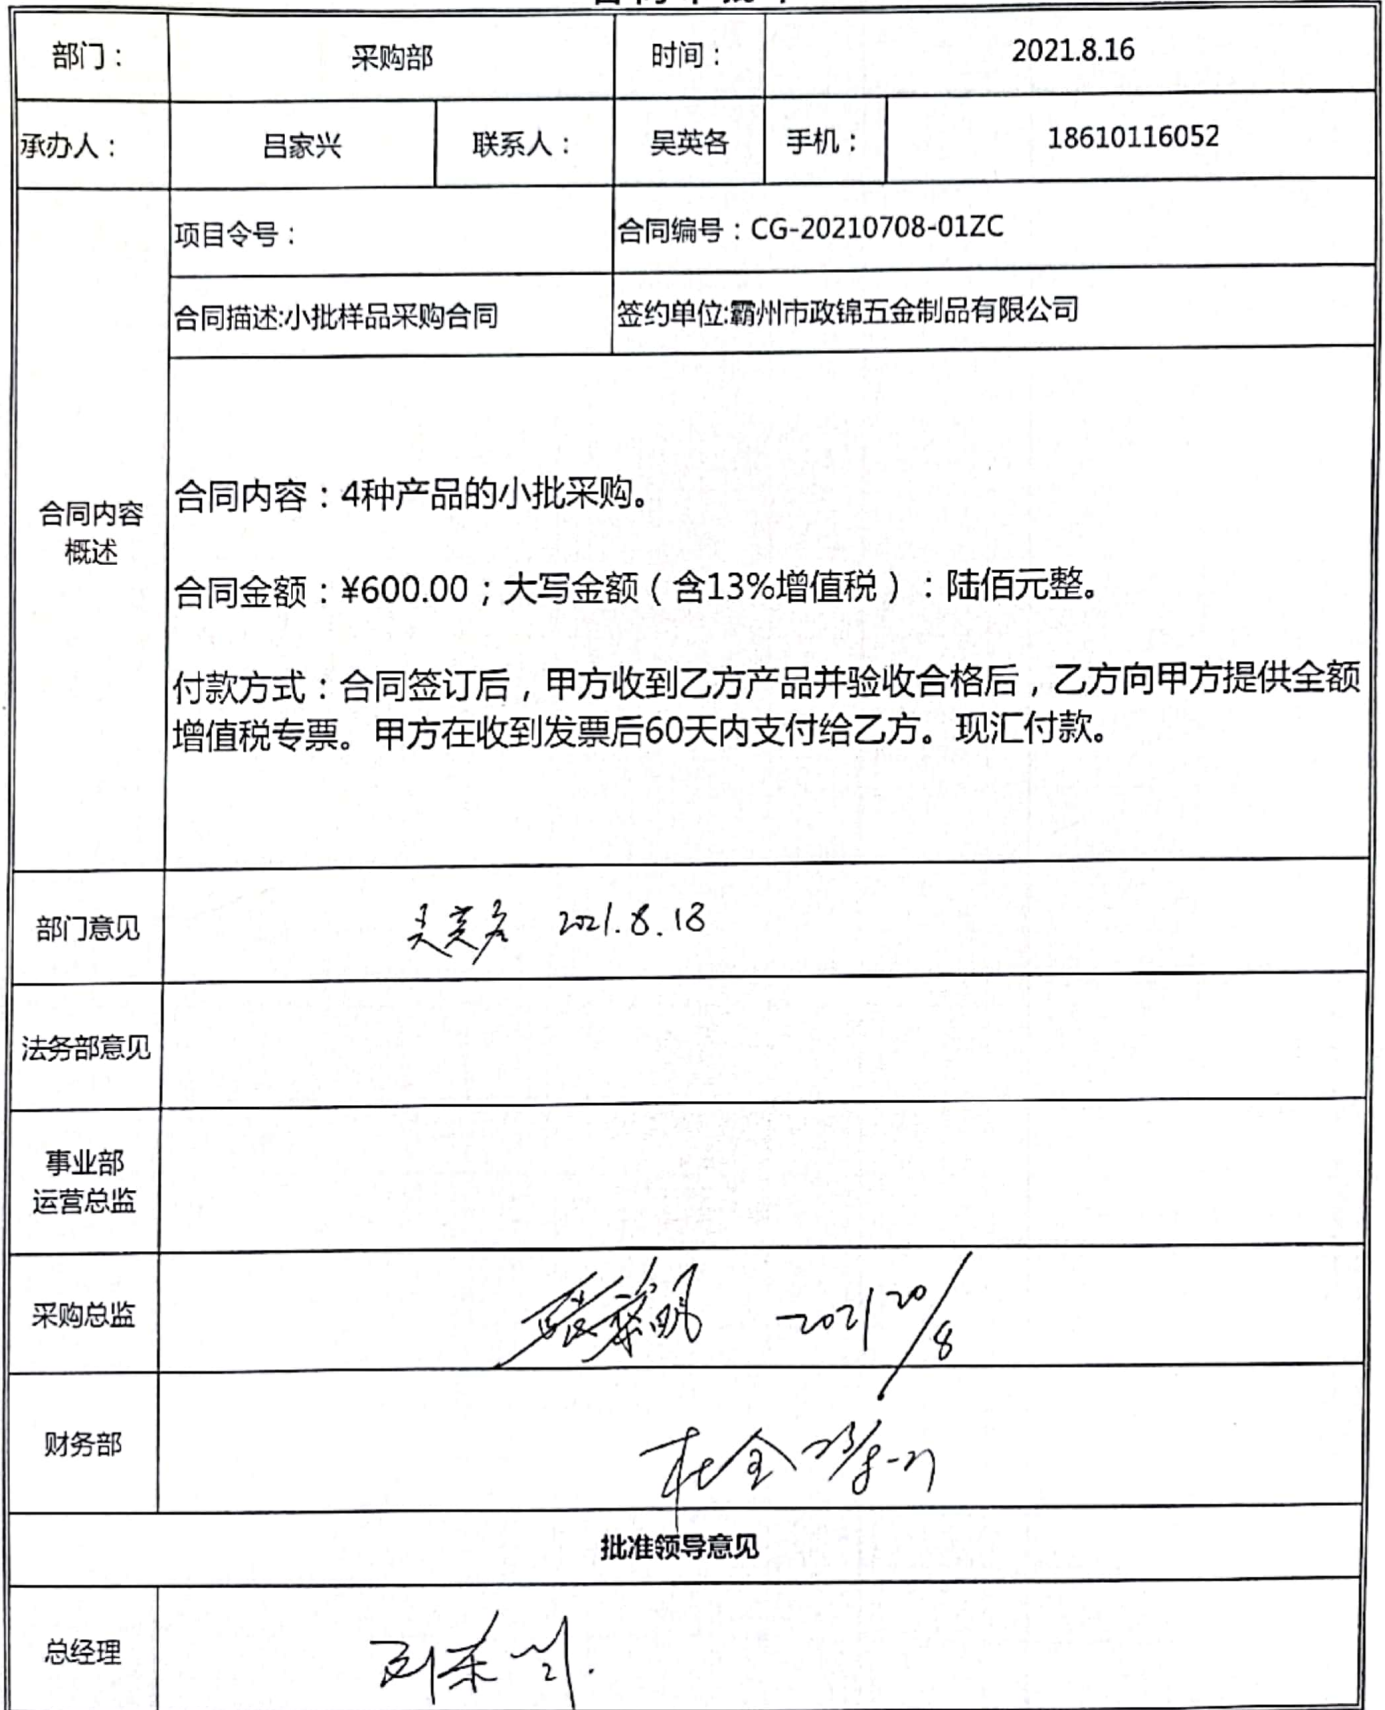 部门： 采购部 时间： 2021.8.16
承办人： 吕家兴 联系人： 吴英各 手机： 18610116052
项目令号： 合同编号：CG-20210708-01ZC
合同描述:小批样品采购合同 签约单位:霸州市政锦五金制品有限公司
合同内容
概述
合同内容：4种产品的小批采购。
合同金额：¥600.00；大写金额（含13%增值税）：陆佰元整。
付款方式：合同签订后，甲方收到乙方产品并验收合格后，乙方向甲方提供全额
增值税专票。甲方在收到发票后60天内支付给乙方。现汇付款。
部门意见 吴英各 2021.8.18
法务部意见
事业部
运营总监
采购总监 2021 20/8
财务部
批准领导意见
总经理